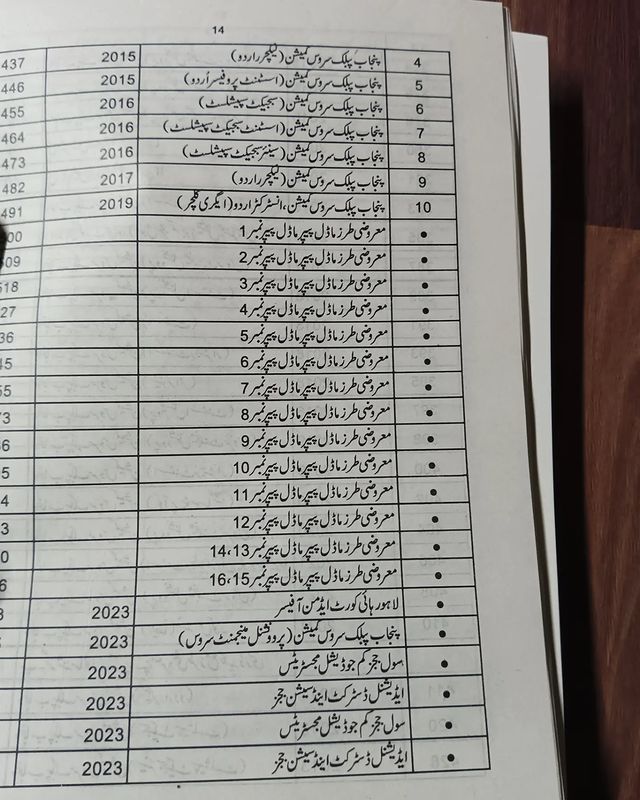 14
4 پنجاب پبلک سروس کمیشن (لیکچرر اردو) 2015 437
5 پنجاب پبلک سروس کمیشن (اسسٹنٹ پروفیسر اُردو) 2015 446
6 پنجاب پبلک سروس کمیشن (سبجیکٹ سپیشلسٹ) 2016 455
7 پنجاب پبلک سروس کمیشن (اسسٹنٹ سبجیکٹ سپیشلسٹ) 2016 464
8 پنجاب پبلک سروس کمیشن (سینئر سبجیکٹ سپیشلسٹ) 2016 473
9 پنجاب پبلک سروس کمیشن (لیکچرر اردو) 2017 482
10 پنجاب پبلک سروس کمیشن، انسٹرکٹر اردو (ایگری کلچر) 2019 491
• معروضی طرز ماڈل پیپر ماڈل پیپر نمبر 1
• معروضی طرز ماڈل پیپر ماڈل پیپر نمبر 2
• معروضی طرز ماڈل پیپر ماڈل پیپر نمبر 3
• معروضی طرز ماڈل پیپر ماڈل پیپر نمبر 4
• معروضی طرز ماڈل پیپر ماڈل پیپر نمبر 5
• معروضی طرز ماڈل پیپر ماڈل پیپر نمبر 6
• معروضی طرز ماڈل پیپر ماڈل پیپر نمبر 7
• معروضی طرز ماڈل پیپر ماڈل پیپر نمبر 8
• معروضی طرز ماڈل پیپر ماڈل پیپر نمبر 9
• معروضی طرز ماڈل پیپر ماڈل پیپر نمبر 10
• معروضی طرز ماڈل پیپر ماڈل پیپر نمبر 11
• معروضی طرز ماڈل پیپر ماڈل پیپر نمبر 12
• معروضی طرز ماڈل پیپر ماڈل پیپر نمبر 13، 14
• معروضی طرز ماڈل پیپر ماڈل پیپر نمبر 15، 16
• لاہور ہائی کورٹ ایڈمن آفیسر 2023
• پنجاب پبلک سروس کمیشن (پروونشل مینجمنٹ سروس) 2023
• سول ججز کم جوڈیشل مجسٹریٹس 2023
• ایڈیشنل ڈسٹرکٹ اینڈ سیشن ججز 2023
• سول ججز کم جوڈیشل مجسٹریٹس 2023
• ایڈیشنل ڈسٹرکٹ اینڈ سیشن ججز 2023